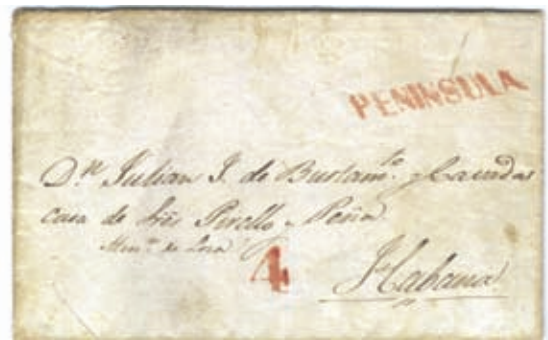 PENINSULA
Dn Julian J. de Bustamte y
casa de Sres Pirallo Peña
4
Habana